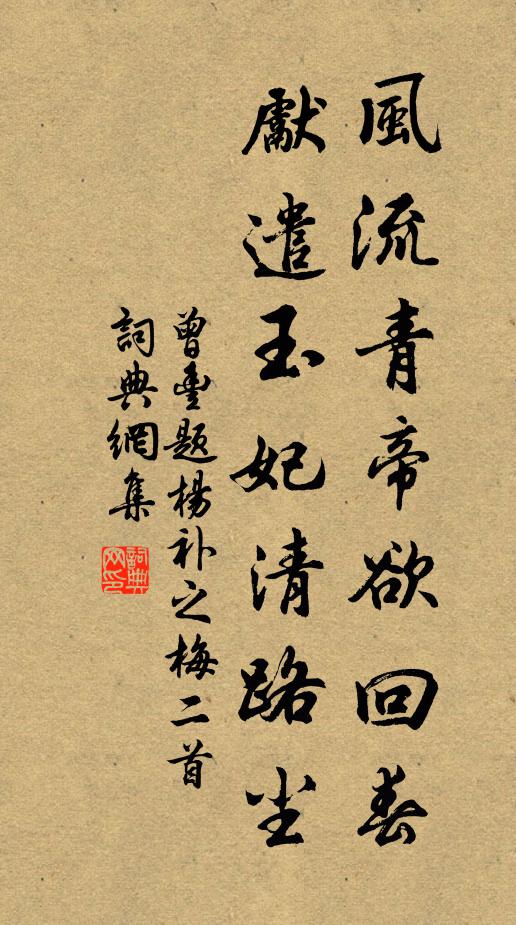 風流青帝欲回春
獻遣玉妃清路尘
曾豐題楊补之梅二首
詞典網集
詞典
网印